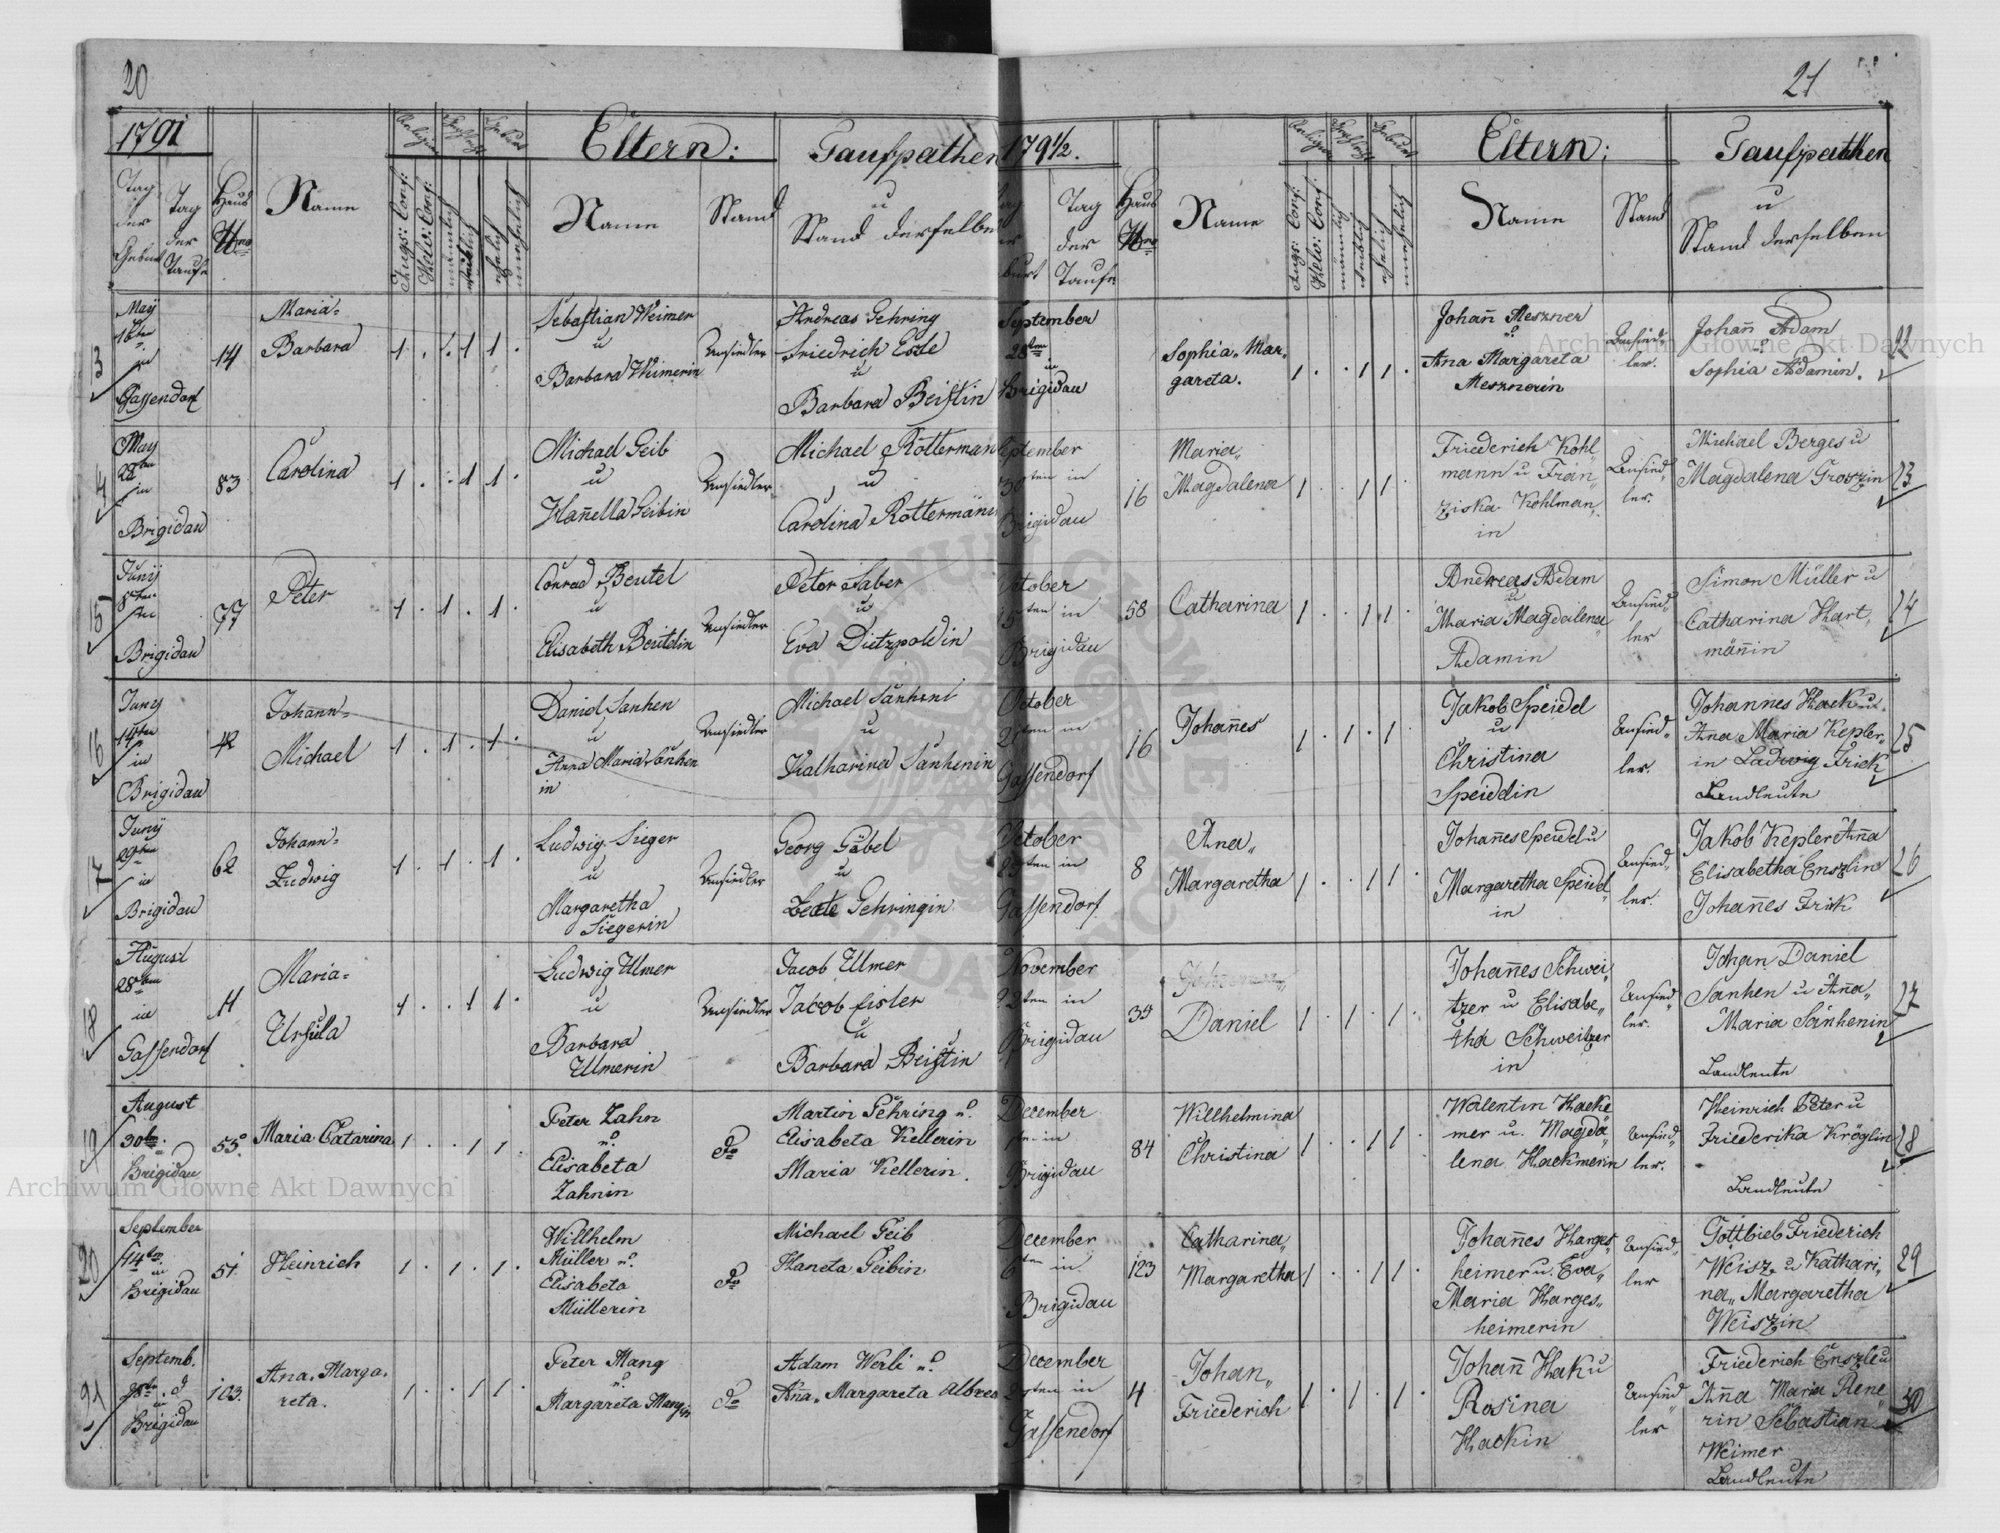 20
1791
Eltern:
Taufpathen
Tag der Geburt
Tag der Taufe
Haus Nro
Name
Augs: Conf:
Helv: Conf:
männlich
weiblich
ehelich
unehelich
Name
Stand
u
Stand derselben
13
May
16ten
in
Gassendorf
14
Maria-
Barbara
1 . . 1 1 .
Sebastian Weimer
u
Barbara Weimerin
Ansiedler
Andreas Gehring
Friedrich
u
Barbara Beistin
14
May
22ten
in
Brigidau
83
Carolina
1 . . 1 1 .
Michael Geib
u
Hañella Geibin
Ansiedler
Michael Rotterman
u
Carolina
15
Juny
8ten
in
Brigidau
77
Peter
1 . 1 . 1 .
Conrad Beutel
u
Elisabeth Beuteln
Ansiedler
Peter Faber
u
Eva Dietzpoldin
16
Juny
14ten
in
Brigidau
42
Johann-
Michael
1 . 1 . 1 .
Daniel Sanhen
u
Anna Maria Sanhen
in
Ansiedler
Michael
u
Katharina Sanhenin
17
Juny
29ten
in
Brigidau
62
Johann-
Ludwig
1 . 1 . 1 .
Ludwig Sieger
u
Margaretha
Siegerin
Ansiedler
Georg Göbel
u
Gehringin
18
August
28ten
in
Gassendorf
11
Maria-
Ursula
1 . . 1 1 .
Ludwig Ulmer
u
Barbara
Ulmerin
Ansiedler
Jacob Ulmer
Jacob Eisler
u
Barbara Beistin
19
August
30ten
Brigidau
55.
Maria Catarina
1 . . 1 1 .
Peter Zahn
u.
Elisabeta
Zahnin
do
Martin Gehring u.
Elisabeta Kellerin
Maria Kellerin.
20
September
14ten
in
Brigidau
51
Heinrich
1 . 1 . 1 .
Willhelm
Müller u.
Elisabeta
Müllerin
do
Michael Geib
Haneta Geibin
21
Septemb.
28ten
in
Brigidau
103.
Ana. Marga.
reta.
1 . . 1 1 .
Peter Mang
u.
Margareta Mangin
do
Adam Werli u.
Aña. Margareta
21
179½.
Eltern:
Taufpathen
Tag der Taufe
Haus Nro
Name
Augs: Conf:
Helv: Conf:
männlich
weiblich
ehelich
unehelich
Name
Stand
u
Stand derselben
September
28ten
in
Brigidau
Sophia„ Mar„
gareta.
1 . . 1 1 .
Johañ Meszner
u
Ana Margareta
Mesznerin
Ansied„
ler.
Johañ Adam
u
Sophia Adamin.
22
September
30ten in
Brigidau
16
Maria„
Magdalena
1 . . 1 1
Friederich Kohl„
mann u Fran„
ziska Kohlman„
in
Ansied„
ler.
Michael Berges u
Magdalena Groszin
23
October
15ten in
Brigidau
58
Catharina
1 . . 1 1 .
Andreas Adam
u
Maria Magdalena
Adamin
Ansied„
ler
Simon Müller u
Catharina Hart„
mäñin
24
October
in
Gassendorf
16
Johañes
1 . 1 . 1 .
Jakob Speidel
u
Christina
Speidelin
Ansied„
ler.
Johannes Hack u.
Ana Maria Kepler„
in Ludwig Frick
Landleute
25
October
in
Gassendorf
8
Ana„
Margaretha
1 . . 1 1 .
Johañes Speidel u
Margaretha Speidel„
in
Ansied„
ler.
Jakob Kepler Aña
Elisabetha Enszlin
Johañes Frick
26
November
in
Brigidau
Daniel
1 . 1 . 1 .
Johañes Schwei„
tzer u Elisabe„
tha Schweitzer
in
Ansied„
ler.
Johan Daniel
Sanhen u Aña„
Maria Sanhenin
Landleute
27
December
in
Brigidau
84
Willhelmina
Christina
1 . . 1 1 .
Walentin Hacke
mer u. Magda„
lena Hackmerin
Ansied„
ler.
Heinrich Peter u
Friederika Kröglin
Landleute
28
December
6ten in
Brigidau
123
Catharina„
Margaretha
1 . . 1 1 .
Johañes Harges„
heimer u. Eva„
Maria Harges„
heimerin
Ansied„
ler
Gottlieb Friederich
Weisz u Kathari„
na„ Margaretha
Weiszin
29
December
in
Gassendorf
4
Johan„
Friederich
1 . 1 . 1 .
Johañ Hak u
Rosina
Hackin
Ansied„
ler
Friederich Enszle u
Aña Maria Rene
rin Sebastian
Weimer
Landleute
30
Archiwum Główne Akt Dawnych
Archiwum Główne Akt Dawnych